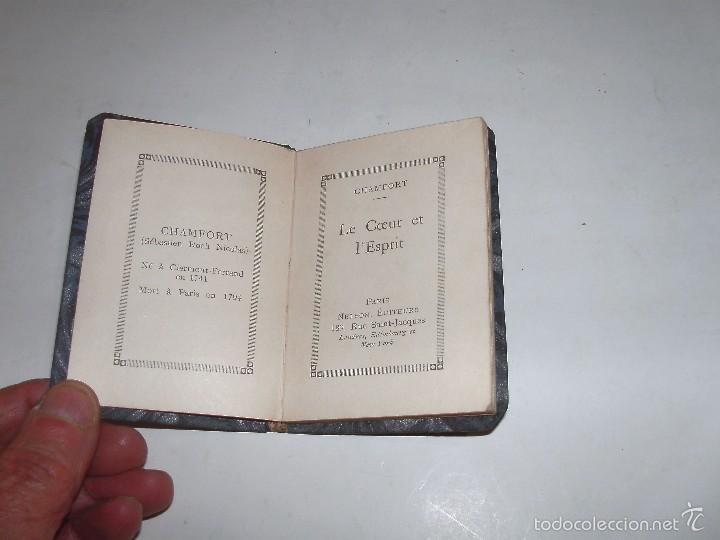 CHAMFORT
(Sébastien Roch Nicolas)
Né à Clermont-Ferrand
en 1741
Mort à Paris en 1794
CHAMFORT
Le Cœur et
l'Esprit
PARIS
NELSON, ÉDITEURS
189, Rue Saint-Jacques
Londres, Edimbourg et
New-York
todocoleccion.net